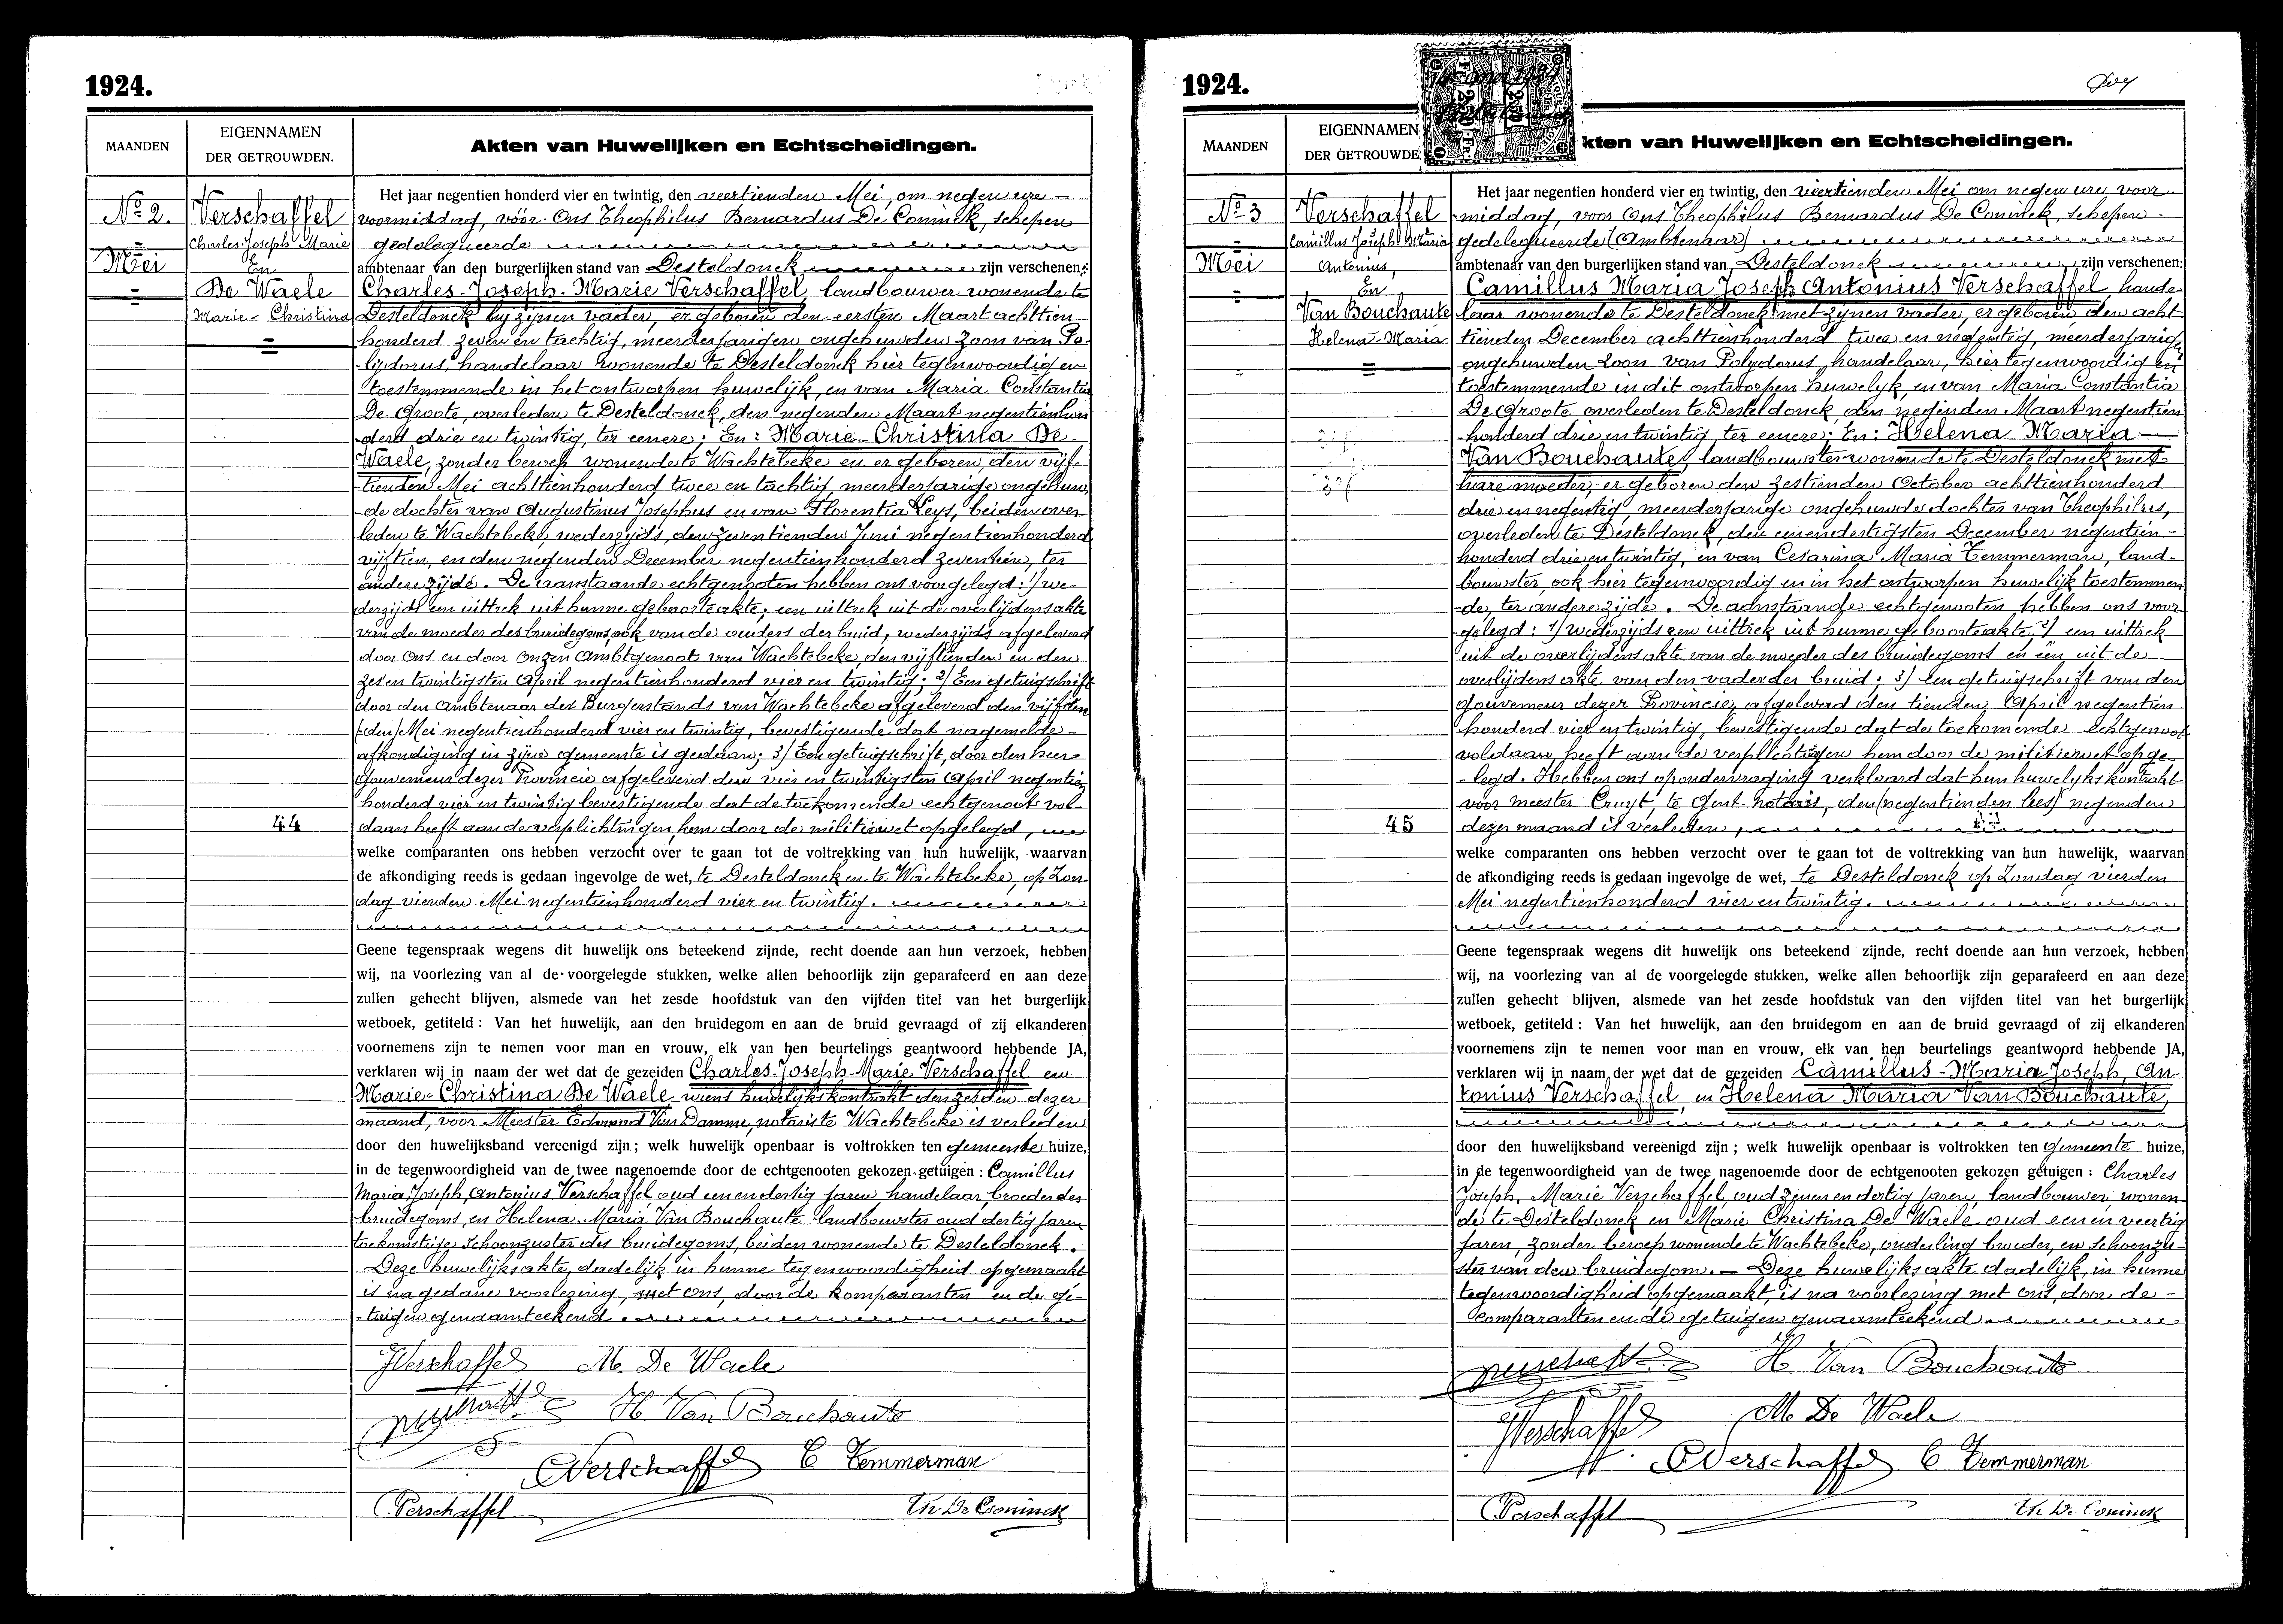 1924.
MAANDEN
EIGENNAMEN
DER GETROUWDEN.
Akten van Huwelijken en Echtscheidingen.
No 2.
Mei
Verschaffel
Charles Joseph Marie
En
De Waele
Marie-Christina
44
Het jaar negentien honderd vier en twintig, den veertienden Mei, om negen ure
voormiddag, vóór Ons Theophilus Bernardus De Coninck, schepen
gedelegueerde
ambtenaar van den burgerlijken stand van Desteldonck zijn verschenen:
Charles-Joseph-Marie Verschaffel landbouwer wonende te
Desteldonck bij zijnen vader, er geboren den eersten Maart achttien
honderd zeven en tachtig, meerderjarigen ongehuwden zoon van Po-
lijdorus, handelaar wonende te Desteldonck hier tegenwoordig en
toestemmende in het ontworpen huwelijk, en van Maria Constantia
De Groote, overleden te Desteldonck, den negenden Maart negentienhon
derd drie en twintig, ter eenere; En: Marie-Christina De
Waele, zonder beroep wonende te Wachtebeke en er geboren, den vijf-
tienden Mei achttienhonderd twee en tachtig meerderjarige ongehuw
de dochter van Augustinus Josephus en van Florentia Leys, beiden over
leden te Wachtebeke, wederzijds, den zeventienden Juni negentienhonderd
vijftien, en den negenden December negentienhonderd zeventien, ter
andere zijde. De aanstaande echtgenooten hebben ons voorgelegd: 1/ we-
derzijds een uittrek uit hunne geboorteakte; een uittrek uit de overlijdensakte
van de moeder des bruidegoms, ook van de ouders der bruid, wederzijds afgeleverd
door Ons en door Onzen Ambtgenoot van Wachtebeke, den vijftienden en den
zes en twintigsten April negentienhonderd vier en twintig; 2/ Een getuigschrift
door den Ambtenaar des Burgerstands van Wachtebeke afgeleverd den vijfden
Mei negentienhonderd vier en twintig, bevestigende dat nagemelde
afkondiging in zijne gemeente is gedaan; 3/ Een getuigschrift, door den heer
Gouverneur dezer Provincie afgeleverd den vier en twintigsten April negentien
honderd vier en twintig bevestigende dat de toekomende echtgenoot vol
daan heeft aan de verplichtingen hem door de militiewet opgelegd,
welke comparanten ons hebben verzocht over te gaan tot de voltrekking van hun huwelijk, waarvan
de afkondiging reeds is gedaan ingevolge de wet, te Desteldonck en te Wachtebeke, op Zon
dag vierden Mei negentienhonderd vier en twintig.
Geene tegenspraak wegens dit huwelijk ons beteekend zijnde, recht doende aan hun verzoek, hebben
wij, na voorlezing van al de voorgelegde stukken, welke allen behoorlijk zijn geparafeerd en aan deze
zullen gehecht blijven, alsmede van het zesde hoofdstuk van den vijfden titel van het burgerlijk
wetboek, getiteld : Van het huwelijk, aan den bruidegom en aan de bruid gevraagd of zij elkanderen
voornemens zijn te nemen voor man en vrouw, elk van hen beurtelings geantwoord hebbende JA,
verklaren wij in naam der wet dat de gezeiden Charles-Joseph-Marie Verschaffel en
Marie-Christina De Waele wiens huwelijkskontrakt den zesden dezer
maand, voor Meester Edmond Van Damme, notaris te Wachtebeke is verleden
door den huwelijksband vereenigd zijn; welk huwelijk openbaar is voltrokken ten gemeente huize,
in de tegenwoordigheid van de twee nagenoemde door de echtgenooten gekozen getuigen : Camillus
Maria, Joseph, Antonius Verschaffel, oud een en dertig jaren handelaar, broeder des
bruidegoms, en Helena Maria Van Bouchaute landbouwster oud dertig jaren
toekomstige schoonzuster des bruidegoms, beiden wonende te Desteldonck.
Deze huwelijksakte, dadelijk in hunne tegenwoordigheid opgemaakt
is na gedane voorlezing, met Ons, door de komparanten en de ge-
tuigen genaamteekend.
JVerschaffel M. De Waele
H Van Bouchaute
Verschaffel C Temmerman
CVerschaffel Th De Coninck
1924.
MAANDEN
EIGENNAMEN
DER GETROUWDE
kten van Huwelijken en Echtscheidingen.
No 3
Mei
Verschaffel
Camillus Joseph Maria
Antonius,
En
Van Bouchaute
Helena-Maria
45
Het jaar negentien honderd vier en twintig, den viertienden Mei om negen ure voor
middag, voor Ons Theophilus Bernardus De Coninck, schepen
gedelegueerde (Ambtenaar)
ambtenaar van den burgerlijken stand van Desteldonck zijn verschenen:
Camillus Maria Joseph Antonius Verschaffel hande
laar wonende te Desteldonck met zijnen vader, er geboren den acht
tienden December achttienhonderd twee en negentig, meerderjarig
ongehuwden zoon van Polydorus, handelaar, hier tegenwoordig en
toestemmende in dit ontworpen huwelyk, en van Maria Constantia
De Groote overleden te Desteldonck, den neginden Maart negentien
honderd drie en twintig, ter eenere; En: Helena Maria
Van Bouchaute, landbouwster wonende te Desteldonck met
hare moeder, er geboren den zestienden October achttienhonderd
drie en negentig, meerderjarige ongehuwde dochter van Theophilus,
overleden te Desteldonck, den eenendertigsten December negentien-
honderd drie en twintig, en van Cesarina Maria Temmerman, land-
bouwster, ook hier tegenwoordig en in het ontworpen huwelijk toestemmen
de, ter andere zijde. De aanstaande echtgenooten hebben ons voor
gelegd: 1/ wederzijds een uittrek uit hunne geboorteakte 2/ een uittrek
uit de overlijdensakte van de moeder des bruidegoms en een uit de
overlijdens akte van den vader der bruid; 3/ een getuigschrift van den
Gouverneur dezer Provincie, afgeleverd den tienden April negentien
honderd vier en twintig, bevestigende dat de toekomende echtgenoot
voldaan heeft aan de verplichtingen hem door de militiewet opge-
legd. Hebben ons op ondervraging verklaard dat hun huwelijks kontrakt
voor meester Cruyt, te Gent notaris, den (negentienden lees) negenden
dezer maand is verleden,
welke comparanten ons hebben verzocht over te gaan tot de voltrekking van hun huwelijk, waarvan
de afkondiging reeds is gedaan ingevolge de wet, te Desteldonck op Zondag vierden
Mei negentienhonderd vier en twintig.
Geene tegenspraak wegens dit huwelijk ons beteekend zijnde, recht doende aan hun verzoek, hebben
wij, na voorlezing van al de voorgelegde stukken, welke allen behoorlijk zijn geparafeerd en aan deze
zullen gehecht blijven, alsmede van het zesde hoofdstuk van den vijfden titel van het burgerlijk
wetboek, getiteld : Van het huwelijk, aan den bruidegom en aan de bruid gevraagd of zij elkanderen
voornemens zijn te nemen voor man en vrouw, elk van hen beurtelings geantwoord hebbende JA,
verklaren wij in naam der wet dat de gezeiden Camillus-Maria Joseph, An
tonius Verschaffel, en Helena Maria Van Bouchaute,
door den huwelijksband vereenigd zijn ; welk huwelijk openbaar is voltrokken ten gemeente huize,
in de tegenwoordigheid van de twee nagenoemde door de echtgenooten gekozen getuigen : Charles
Joseph, Marie Verschaffel, oud zeven en dertig jaren, landbouwer, wonen
de te Desteldonck en Marie Christina De Waele oud een en veertig
jaren, zonder beroep wonende te Wachtebeke, onderling broeder, en schoonzu-
ster van den bruidegom. — Deze huwelijksakte dadelijk, in hunne
tegenwoordigheid opgemaakt, is na voorlezing met Ons, door de
comparanten en de getuigen genaamteekend.
H Van Bouchaute
JVerschaffel M. De Waele
Verschaffel C Temmerman
CVerschaffel Th De Coninck